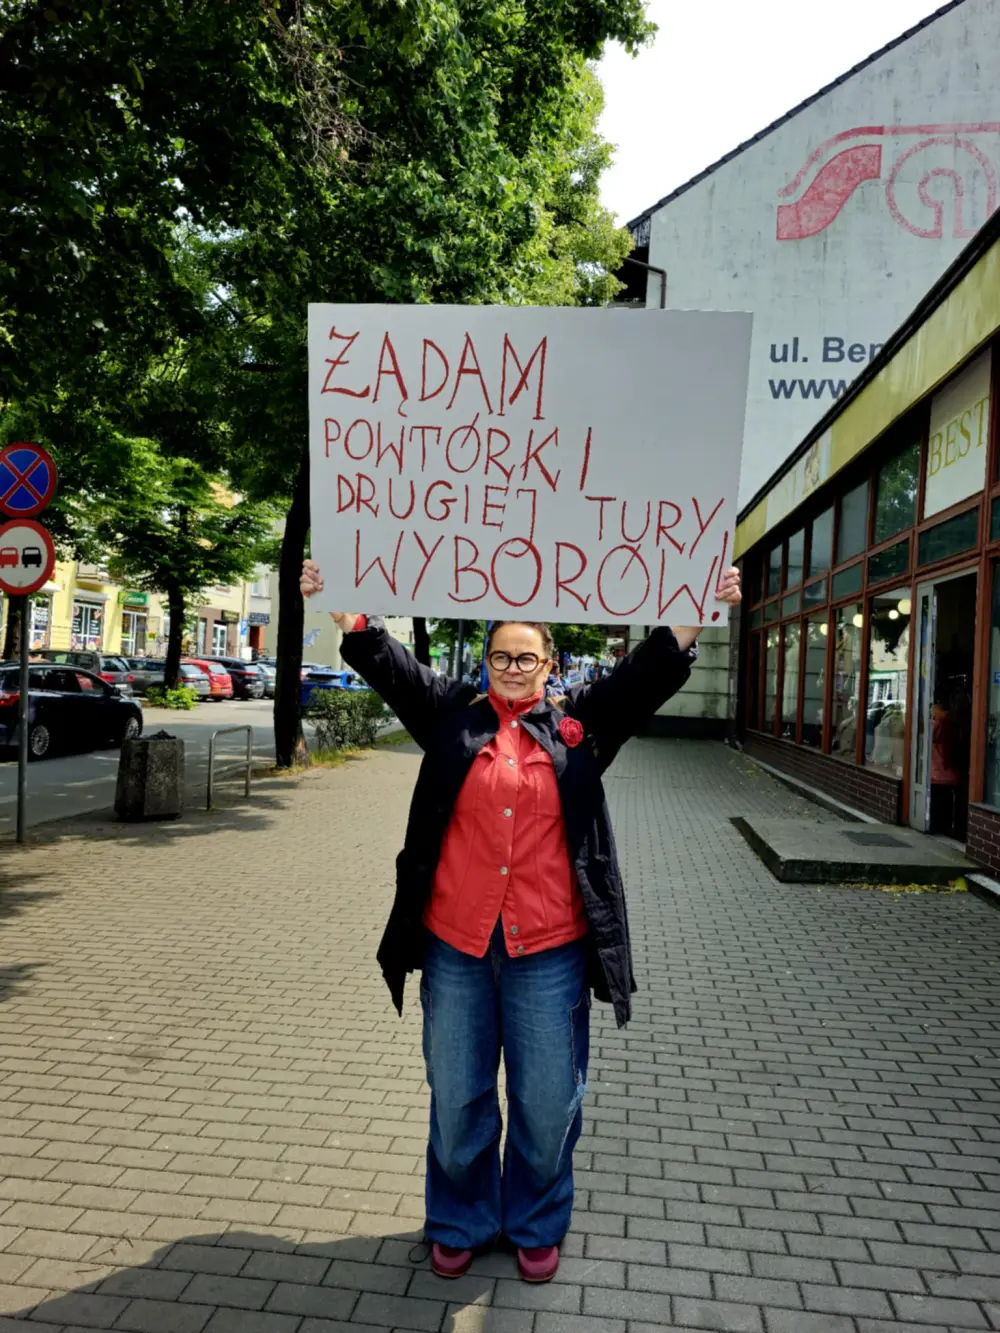 ŻĄDAM
POWTÓRKI
DRUGIEJ TURY
WYBORÓW!
ul. Ben
www
BEST